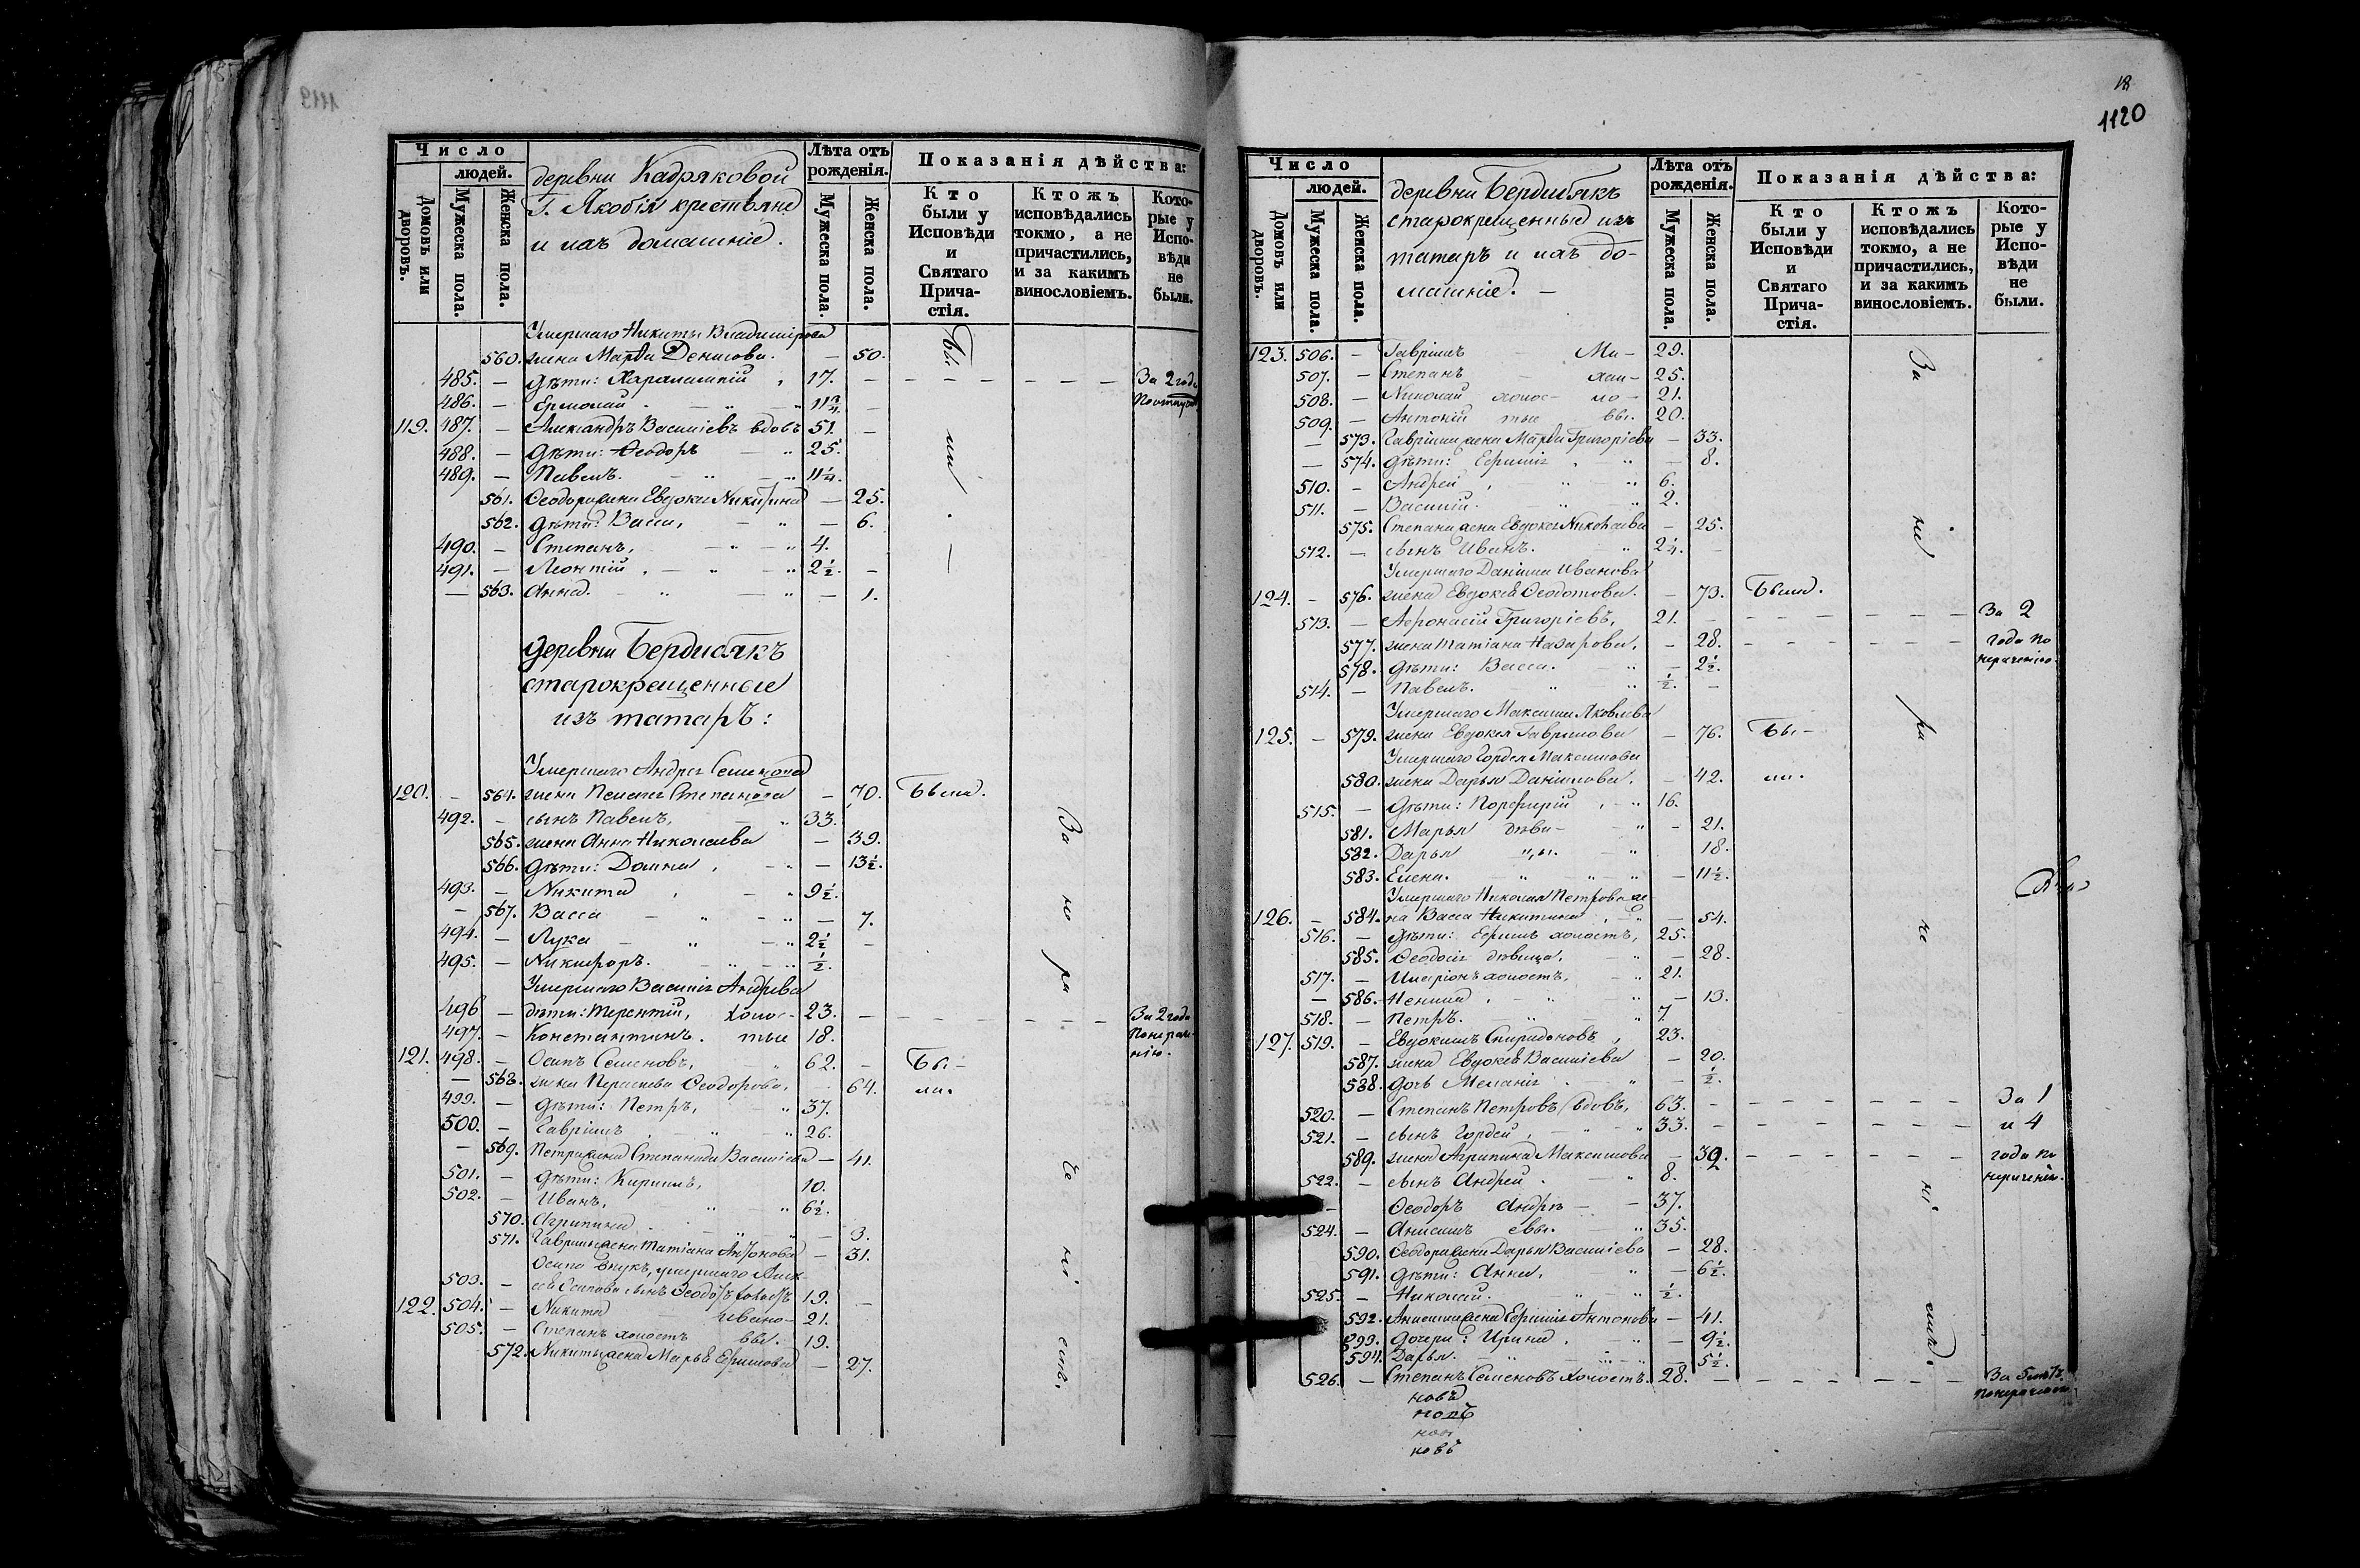 Число
людей.
Домовъ или дворовъ.
Мужеска пола.
Женска пола.
деревни Кадряковой
Г. Якобія крестьяне
и ихъ домашніе.
Лѣта отъ рожденія.
Мужеска пола.
Женска пола.
Показанія дѣйства:
Кто были у Исповѣди и Святаго Причастія.
Ктожъ исповѣдались токмо, а не причастились, и за какимъ винословіемъ.
Которые у Исповѣди не были.
Умершаго Никиты Владимірова
560. жена Марѳа Денисова. — 50. Бы
485. — дѣти: Харалампій 17. — За 2 года
486. — Ермолай 11 —
119. 487. — Александръ Василіевъ вдовъ 51. — ли
488. — дѣти: Ѳеодоръ 25.
489. — Павелъ. 11
561. Ѳеодора жена Евдокія Никитина — 25.
562. дѣти: Васса, — 6.
490. — Степанъ, 4.
491. — Леонтій 2½. —
— 563. Анна. — 1.
деревни Бердибякъ
старокрещенные
изъ татаръ:
Умершаго Андрея Семенова
120. — 564. жена Пелагея Степанова — 70. Была.
492. — сынъ Павелъ, 33. За
565. жена Анна Николаева — 39.
566. дѣти: Домна, — 13½.
493. — Никита 9½.
— 567. Васса — 7. не
494. — Лука 2½ —
495. — Никифоръ. ½. ра
Умершаго Василія Андреева
496 — дѣти: Терентій, холос- 23. — За 2 года
497. — Константинъ. тые 18. понераче-
нію.
121. 498. — Осипъ Семеновъ, 62. — Бы-
— 568. жена Параскева Ѳеодорова. 64. ли.
499. — дѣти: Петръ, 37.
500. — Гавріилъ 26.
— 569. Петра жена Степанида Василіева — 41. че
501. — дѣти: Кириллъ, 10.
502. — Иванъ, 6½.
570. Агрипина — 3.
571. Гавріила жена Татіана Антонова — 31. ні
Осипа внукъ, умершаго Алек-
503. — сѣя Осипова сынъ Ѳеодоръ холостъ 19. —
122. 504. — Никита Ивано- 21.
505. — Степанъ холостъ вы. 19. емъ.
572. Никиты жена Марья Ефимова — 27.
18
1120
Число
людей.
Домовъ или дворовъ.
Мужеска пола.
Женска пола.
деревни Бердибякъ
старокрещенные изъ
татаръ и ихъ до-
машніе. —
Лѣта отъ рожденія.
Мужеска пола.
Женска пола.
Показанія дѣйства:
Кто были у Исповѣди и Святаго Причастія.
Ктожъ исповѣдались токмо, а не причастились, и за какимъ винословіемъ.
Которые у Исповѣди не были.
123. 506. — Гавріилъ Ми- 29. За
507. — Степанъ хаи- 25.
508. — Николай холос- ло- 21.
509. — Антоній тые вы. 20.
— 573. Гавріила жена Марѳа Григоріева — 33.
— 574. дѣти: Ефимія — 8.
510. — Андрей 6.
511. — Василій. 2.
575. Степана жена Евдокія Николаева — 25. не
512. — сынъ Иванъ. 2¼. —
Умершаго Даніила Иванова
124. — 576. жена Евдокія Ѳедотова. — 73. Была.
513. — Аѳонасій Григоріевъ, 21. — За 2
577. жена Татіана Назарова. — 28. — года по
578. дѣти: Васса. — 2½. нераченію.
514. — Павелъ. ½. —
Умершаго Максима Яковлева ра
125. — 579. жена Евдокія Гаврилова — 76. Бы-
Умершаго Гордея Максимова
580. жена Дарья Данилова. — 42. ли.
515. — дѣти: Порфирій 16.
581. Марья дѣви- — 21.
582. Дарья 18.
583. Елена. — 11½.
Умершаго Николая Петрова же
126. — 584. на Васса Никитина — 54.
516. — дѣти: Ефимъ холостъ, 25. че
585. Ѳеодосія дѣвица. — 28.
517. — Иларіонъ холостъ, 21.
— 586. Ненила — 13.
518. — Петръ. 7.
127. 519. — Евдокимъ Спиридоновъ, 23.
587. жена Евдокія Василіева — 20.
588. дочь Меланія — ½.
520. — Степанъ Петровъ вдовъ, 63. — За 1
521. — сынъ Гордей, 33. — и 4
589. жена Агрипина Максимова — 39. — года по
522. — сынъ Андрей 8. нераченію.
— Ѳеодоръ Андре- 37. ні
524. — Анисимъ евы. 35.
590. Ѳеодора жена Дарья Василіева — 28.
591. дѣти: Анна, — 6½.
525. — Николай. ½.
592. Анисима жена Ефимія Антонова — 41. емъ.
593. дочери: Ирина — 9½.
594. Дарья. — 5½.
526. — Степанъ Семеновъ холостъ. 28. — За 5 лѣтъ
новъ
новъ
новъ